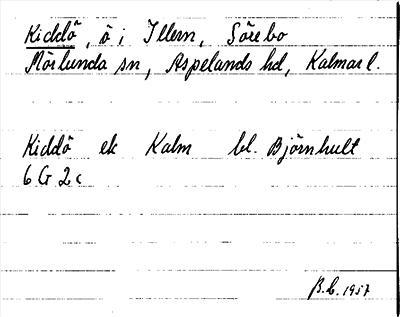 Kiddö, ö i Illern, Sörebo
Mörlunda sn, Aspelands hd, Kalmar l.
Kiddö ek Kalm bl. Björnhult
6 G 2 c
B.L. 1957